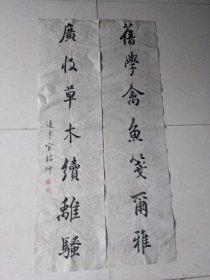 舊學禽魚箋爾雅
廣收草木續離騷